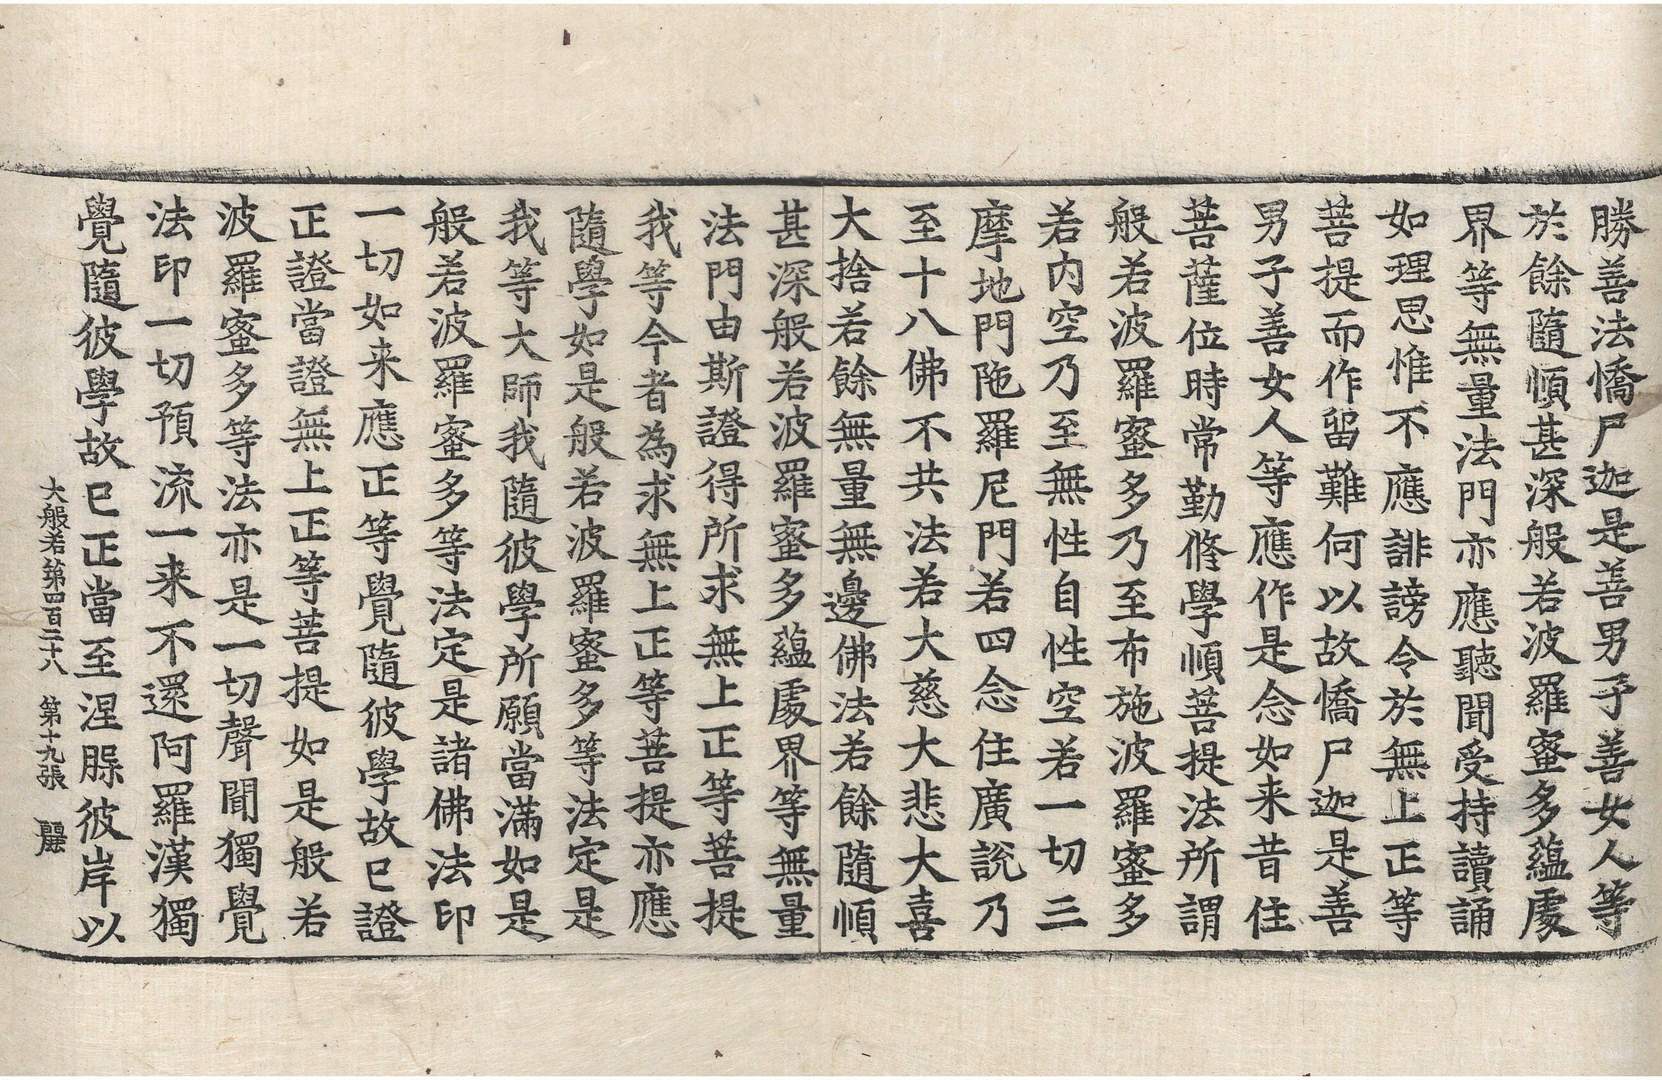 勝善法憍尸迦是善男子善女人等
於餘隨順甚深般若波羅蜜多蘊處
界等無量法門亦應聽聞受持讀誦
如理思惟不應誹謗令於無上正等
菩提而作留難何以故憍尸迦是善
男子善女人等應作是念如来昔住
菩薩位時常勤修學順菩提法所謂
般若波羅蜜多乃至布施波羅蜜多
若內空乃至無性自性空若一切三
摩地門陁羅尼門若四念住廣說乃
至十八佛不共法若大慈大悲大喜
大捨若餘無量無邊佛法若餘隨順
甚深般若波羅蜜多蘊處界等無量
法門由斯證得所求無上正等菩提
我等今者為求無上正等菩提亦應
隨學如是般若波羅蜜多等法定是
我等大師我隨彼學所願當滿如是
般若波羅蜜多等法定是諸佛法印
一切如来應正等覺隨彼學故已證
正證當證無上正等菩提如是般若
波羅蜜多等法亦是一切聲聞獨覺
法印一切預流一来不還阿羅漢獨
覺隨彼學故已正當至涅槃彼岸以
大般若第四百二十八 第十九張 麗